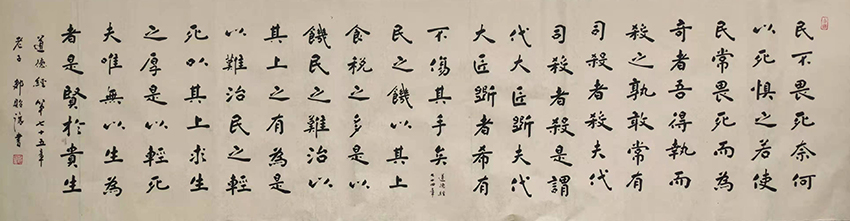 民不畏死奈何
以死惧之若使
民常畏死而為
奇者吾得執而
殺之孰敢常有
司殺者殺夫代
司殺者殺是謂
代大匠斲夫代
大匠斲者希有
不傷其手矣
道德經
七十四章
民之饑以其上
食税之多是以
饑民之難治以
其上之有為是
以難治民之輕
死以其上求生
之厚是以輕死
夫唯無以生為
者是賢於貴生
道德經第七十五章
老子
書